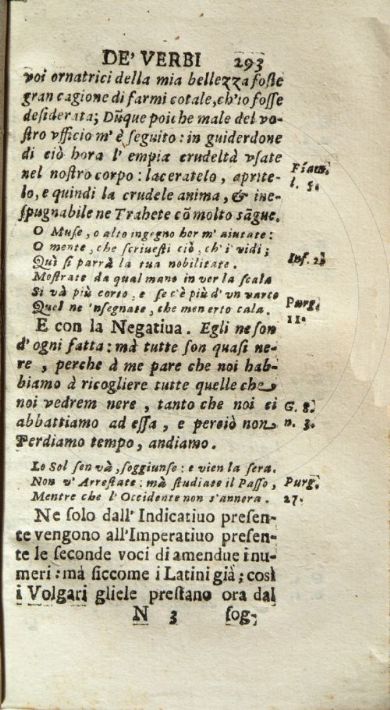 DE' VERBI 293
voi ornatrici della mia bellezza foste
gran cagione di farmi cotale, ch'io fosse
desiderata; Dũque poiche male del vo-
stro vfficio m' è seguito: in guiderdone
di ciò hora l' empia crudeltà vsate
nel nostro corpo: laceratelo, aprite-
lo, e quindi la crudele anima, & ine-
spugnabile ne Trahete cõ molto sãgue.
Fiam.
l. 5.
O Muse, o alto ingegno hor m' aiutate:
O mente, che scriuesti ciò, ch' i' vidi;
Quì si parrà la tua nobilitate.
Inf. 2.
Mostrate da qual mano in ver la scala
Si và più corto, e se c'è più d' vn varco
Quel ne 'nsegnate, che men erto cala.
Purg.
11.
E con la Negatiua. Egli ne son
d' ogni fatta: mà tutte son quasi ne-
re, perche à me pare che noi hab-
biamo à ricogliere tutte quelle che
noi vedrem nere, tanto che noi ci
abbattiamo ad essa, e perciò non
Perdiamo tempo, andiamo.
G. 8.
n. 3.
Lo Sol sen và, soggiunse: e vien la sera.
Non v' Arrestate: mà studiate il Passo,
Mentre che l' Occidente non s'annera.
Purg.
27.
Ne solo dall' Indicatiuo presen-
te vengono all'Imperatiuo presen-
te le seconde voci di amendue i nu-
meri: mà siccome i Latini già; così
i Volgari gliele prestano ora dal
N 3 sog-